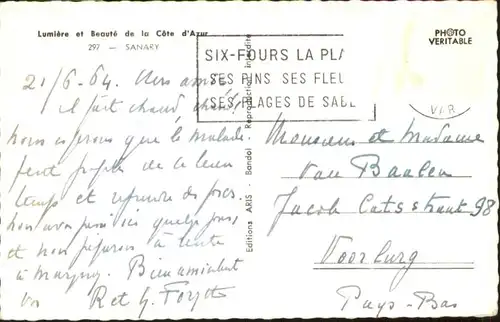 Lumière et Beauté de la Côte d'Azur
297 — SANARY
PHOTO
VERITABLE
SIX-FOURS LA PLA
SES PINS SES FLEU
SES PLAGES DE SABL
VAR
Editions ARIS - Bandol - Reproduction interdite
21/6-64. Chers amis
il fait chaud, chaud!
nous espérons que le malade
peut profiter de ce beau
temps et reprendre des forces.
nous avons passé ici quelques jours,
et nous
à
Bien amicalement
R et G.
Monsieur et Madame
Van Baalen
Jacob Catsstraat 98
Voorburg
Pays-Bas